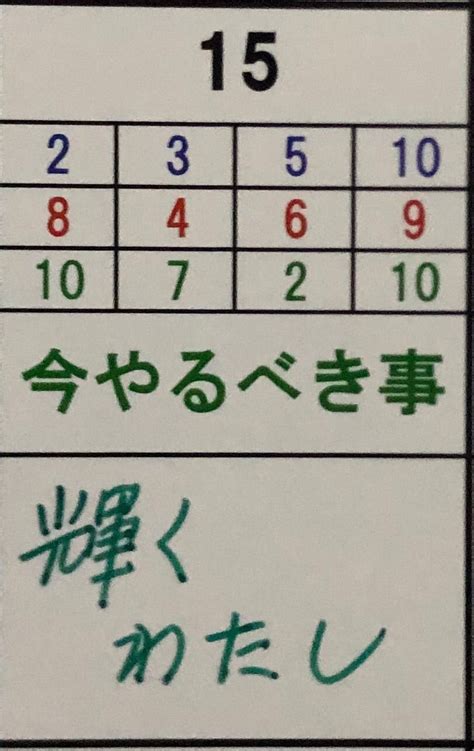 15
2 3 5 10
8 4 6 9
10 7 2 10
今やるべき事
輝く
わたし